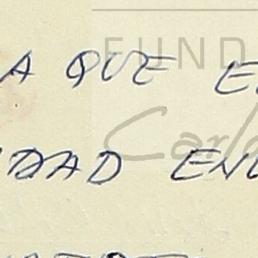 FUND
A QUE E
Carlo
DAD EN